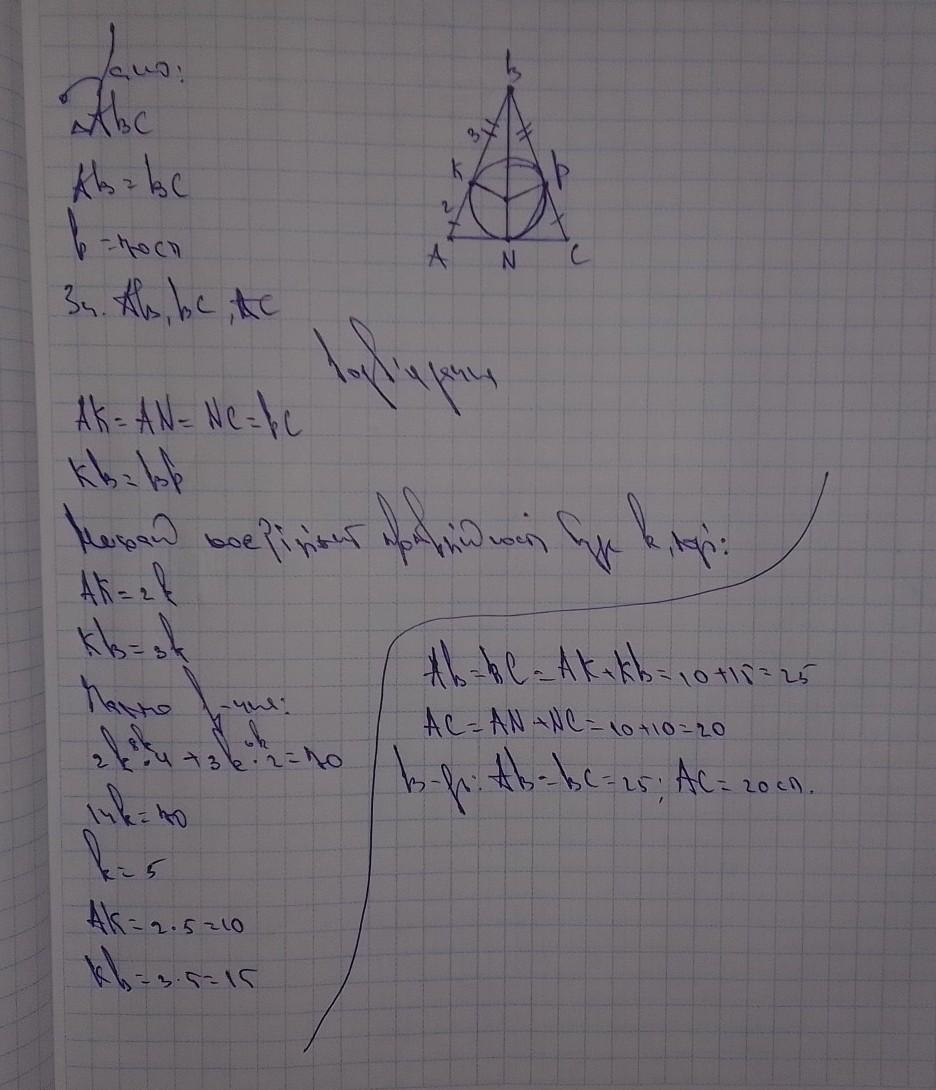 Дано:
△ABC
AB = BC
P = 70 см
Зн. AB, BC, AC
B
3
K
P
2
A
N
C
Розв'язання
AK = AN = NC = PC
KB = BP
Нехай коефіцієнт пропорційності буде k, тоді:
AK = 2k
KB = 3k
Маємо р-ння:
8k 6k
2k · 4 + 3k · 2 = 70
14k = 70
k = 5
AK = 2 · 5 = 10
KB = 3 · 5 = 15
AB = BC = AK + KB = 10 + 15 = 25
AC = AN + NC = 10 + 10 = 20
В-дь: AB = BC = 25; AC = 20 см.